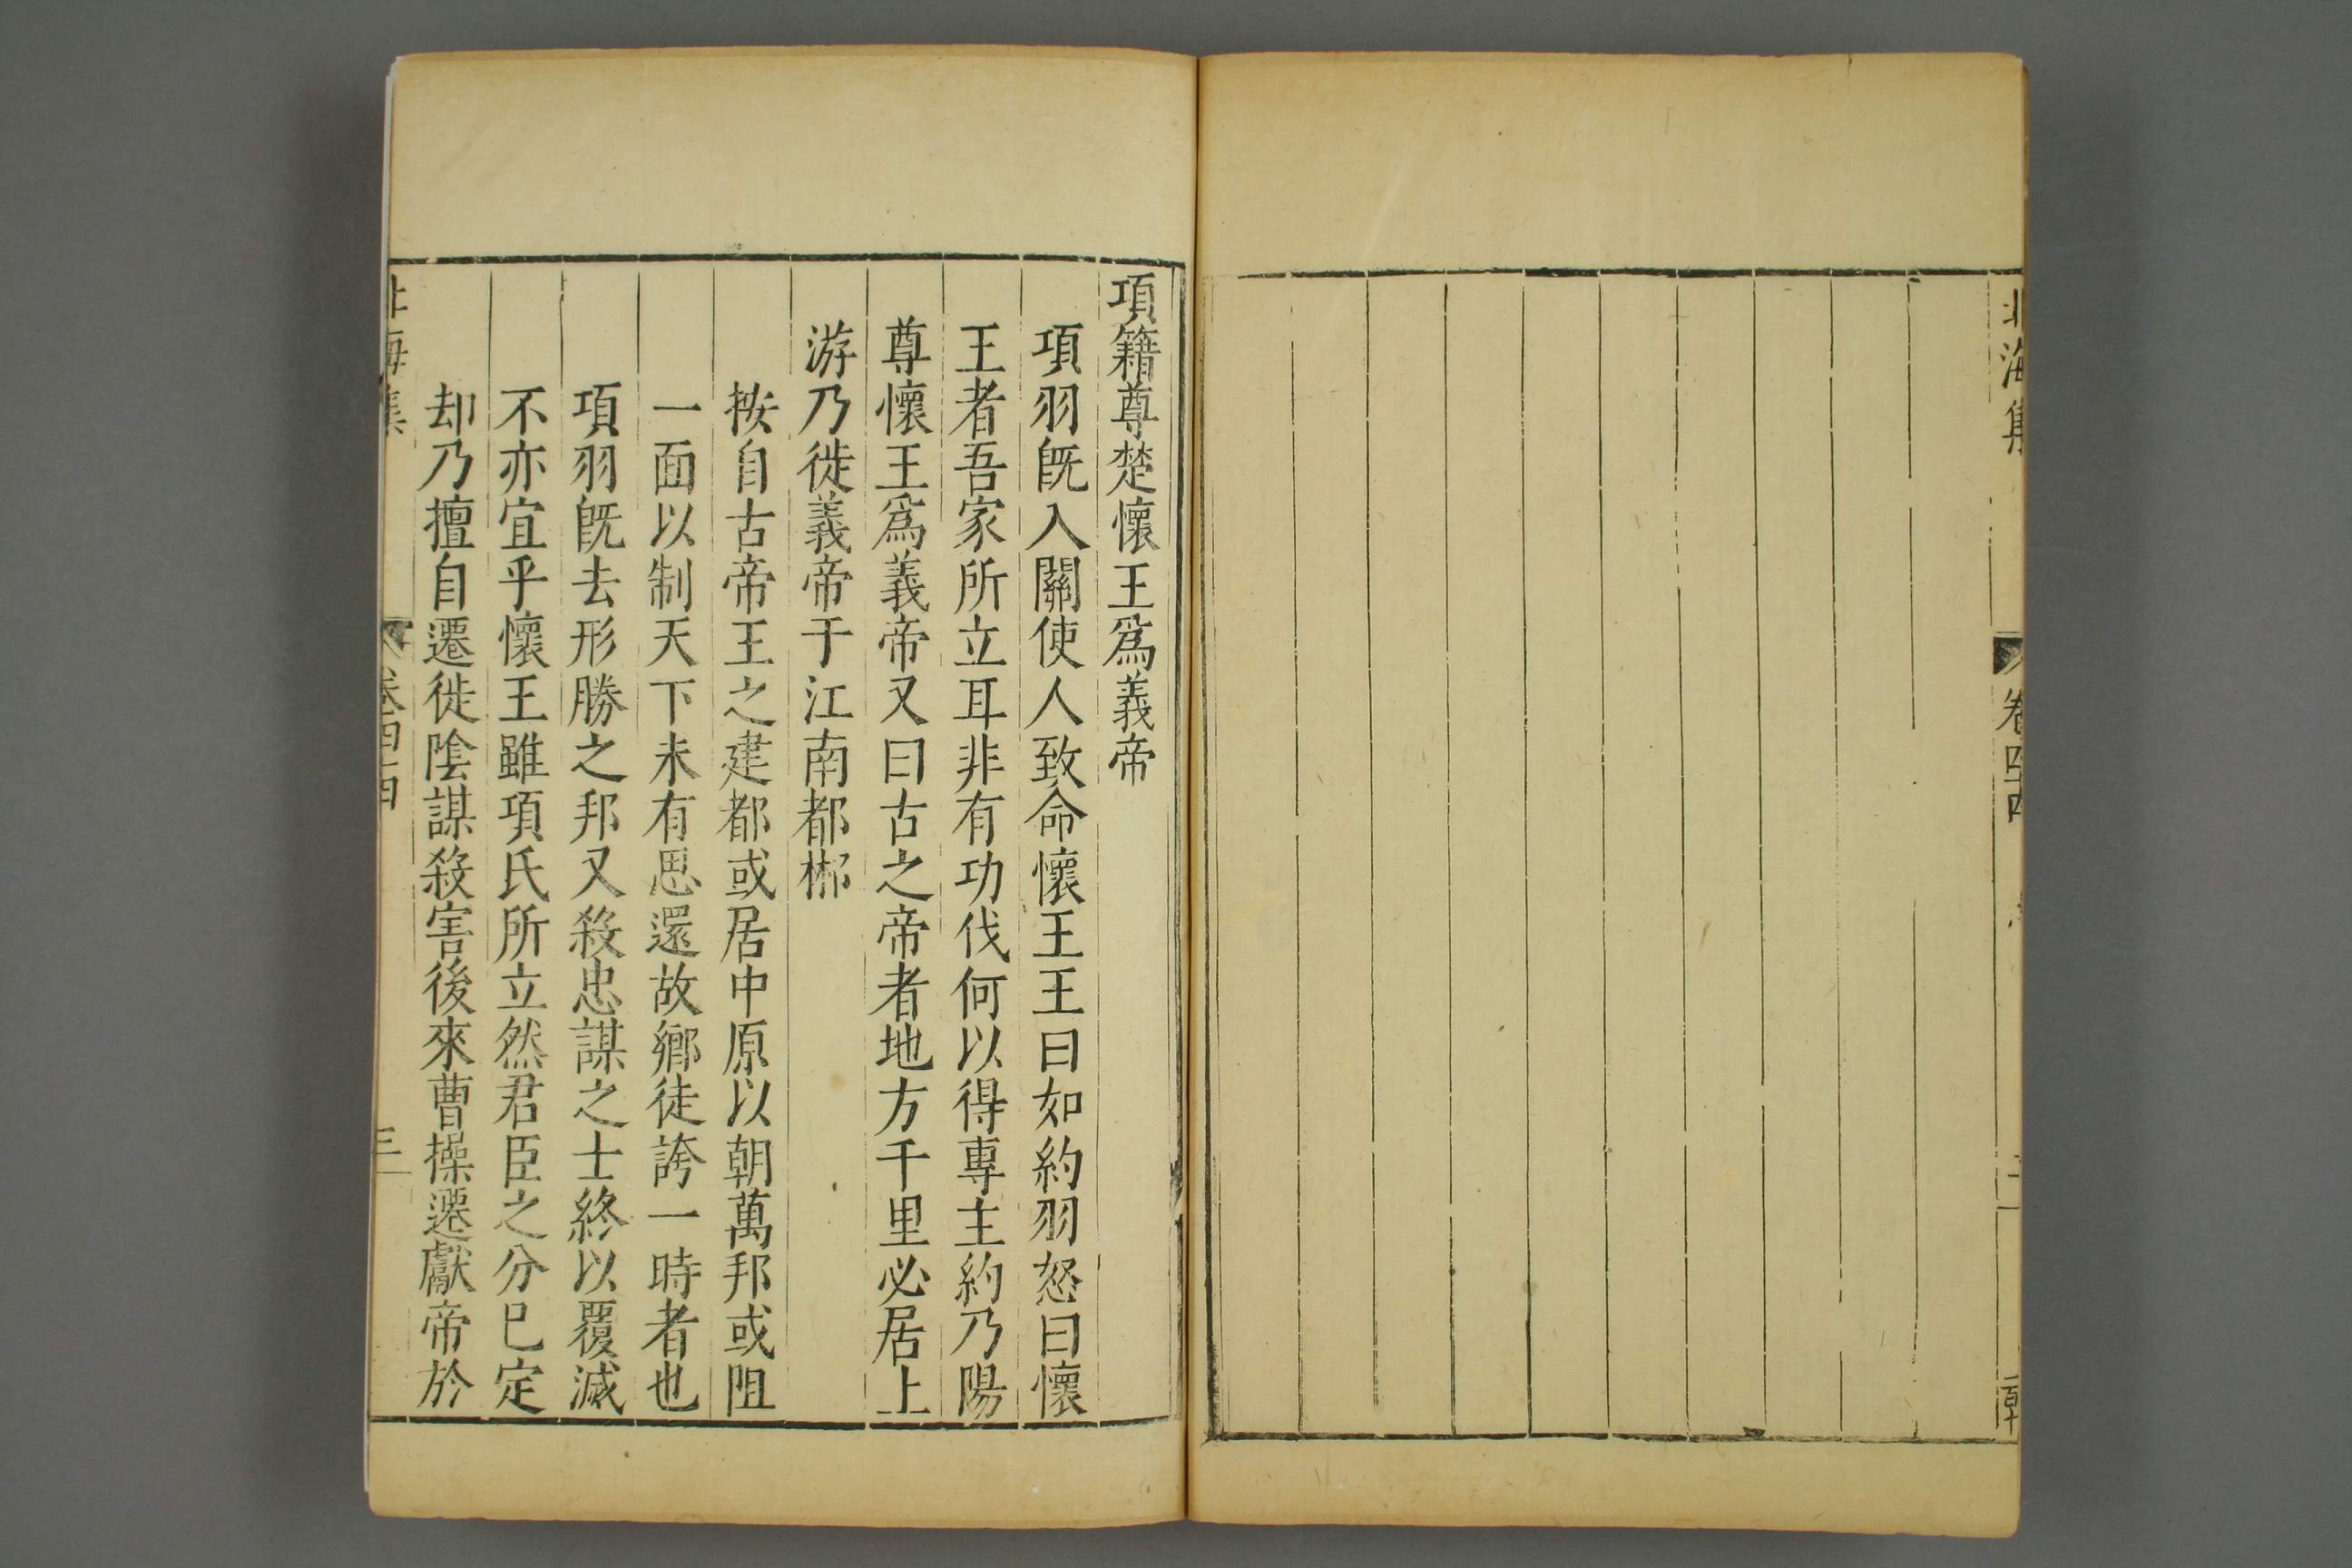 北海集
卷四十四
項籍尊楚懷王爲義帝
項羽旣入關使人致命懷王王曰如約羽怒曰懷
王者吾家所立耳非有功伐何以得專主約乃陽
尊懷王爲義帝又曰古之帝者地方千里必居上
游乃徙義帝于江南都郴
按自古帝王之建都或居中原以朝萬邦或阻
一面以制天下未有思還故鄉徒誇一時者也
項羽旣去形勝之邦又殺忠謀之士終以覆滅
不亦宜乎懷王雖項氏所立然君臣之分已定
却乃擅自遷徙陰謀殺害後來曹操遷獻帝於
北海集
三